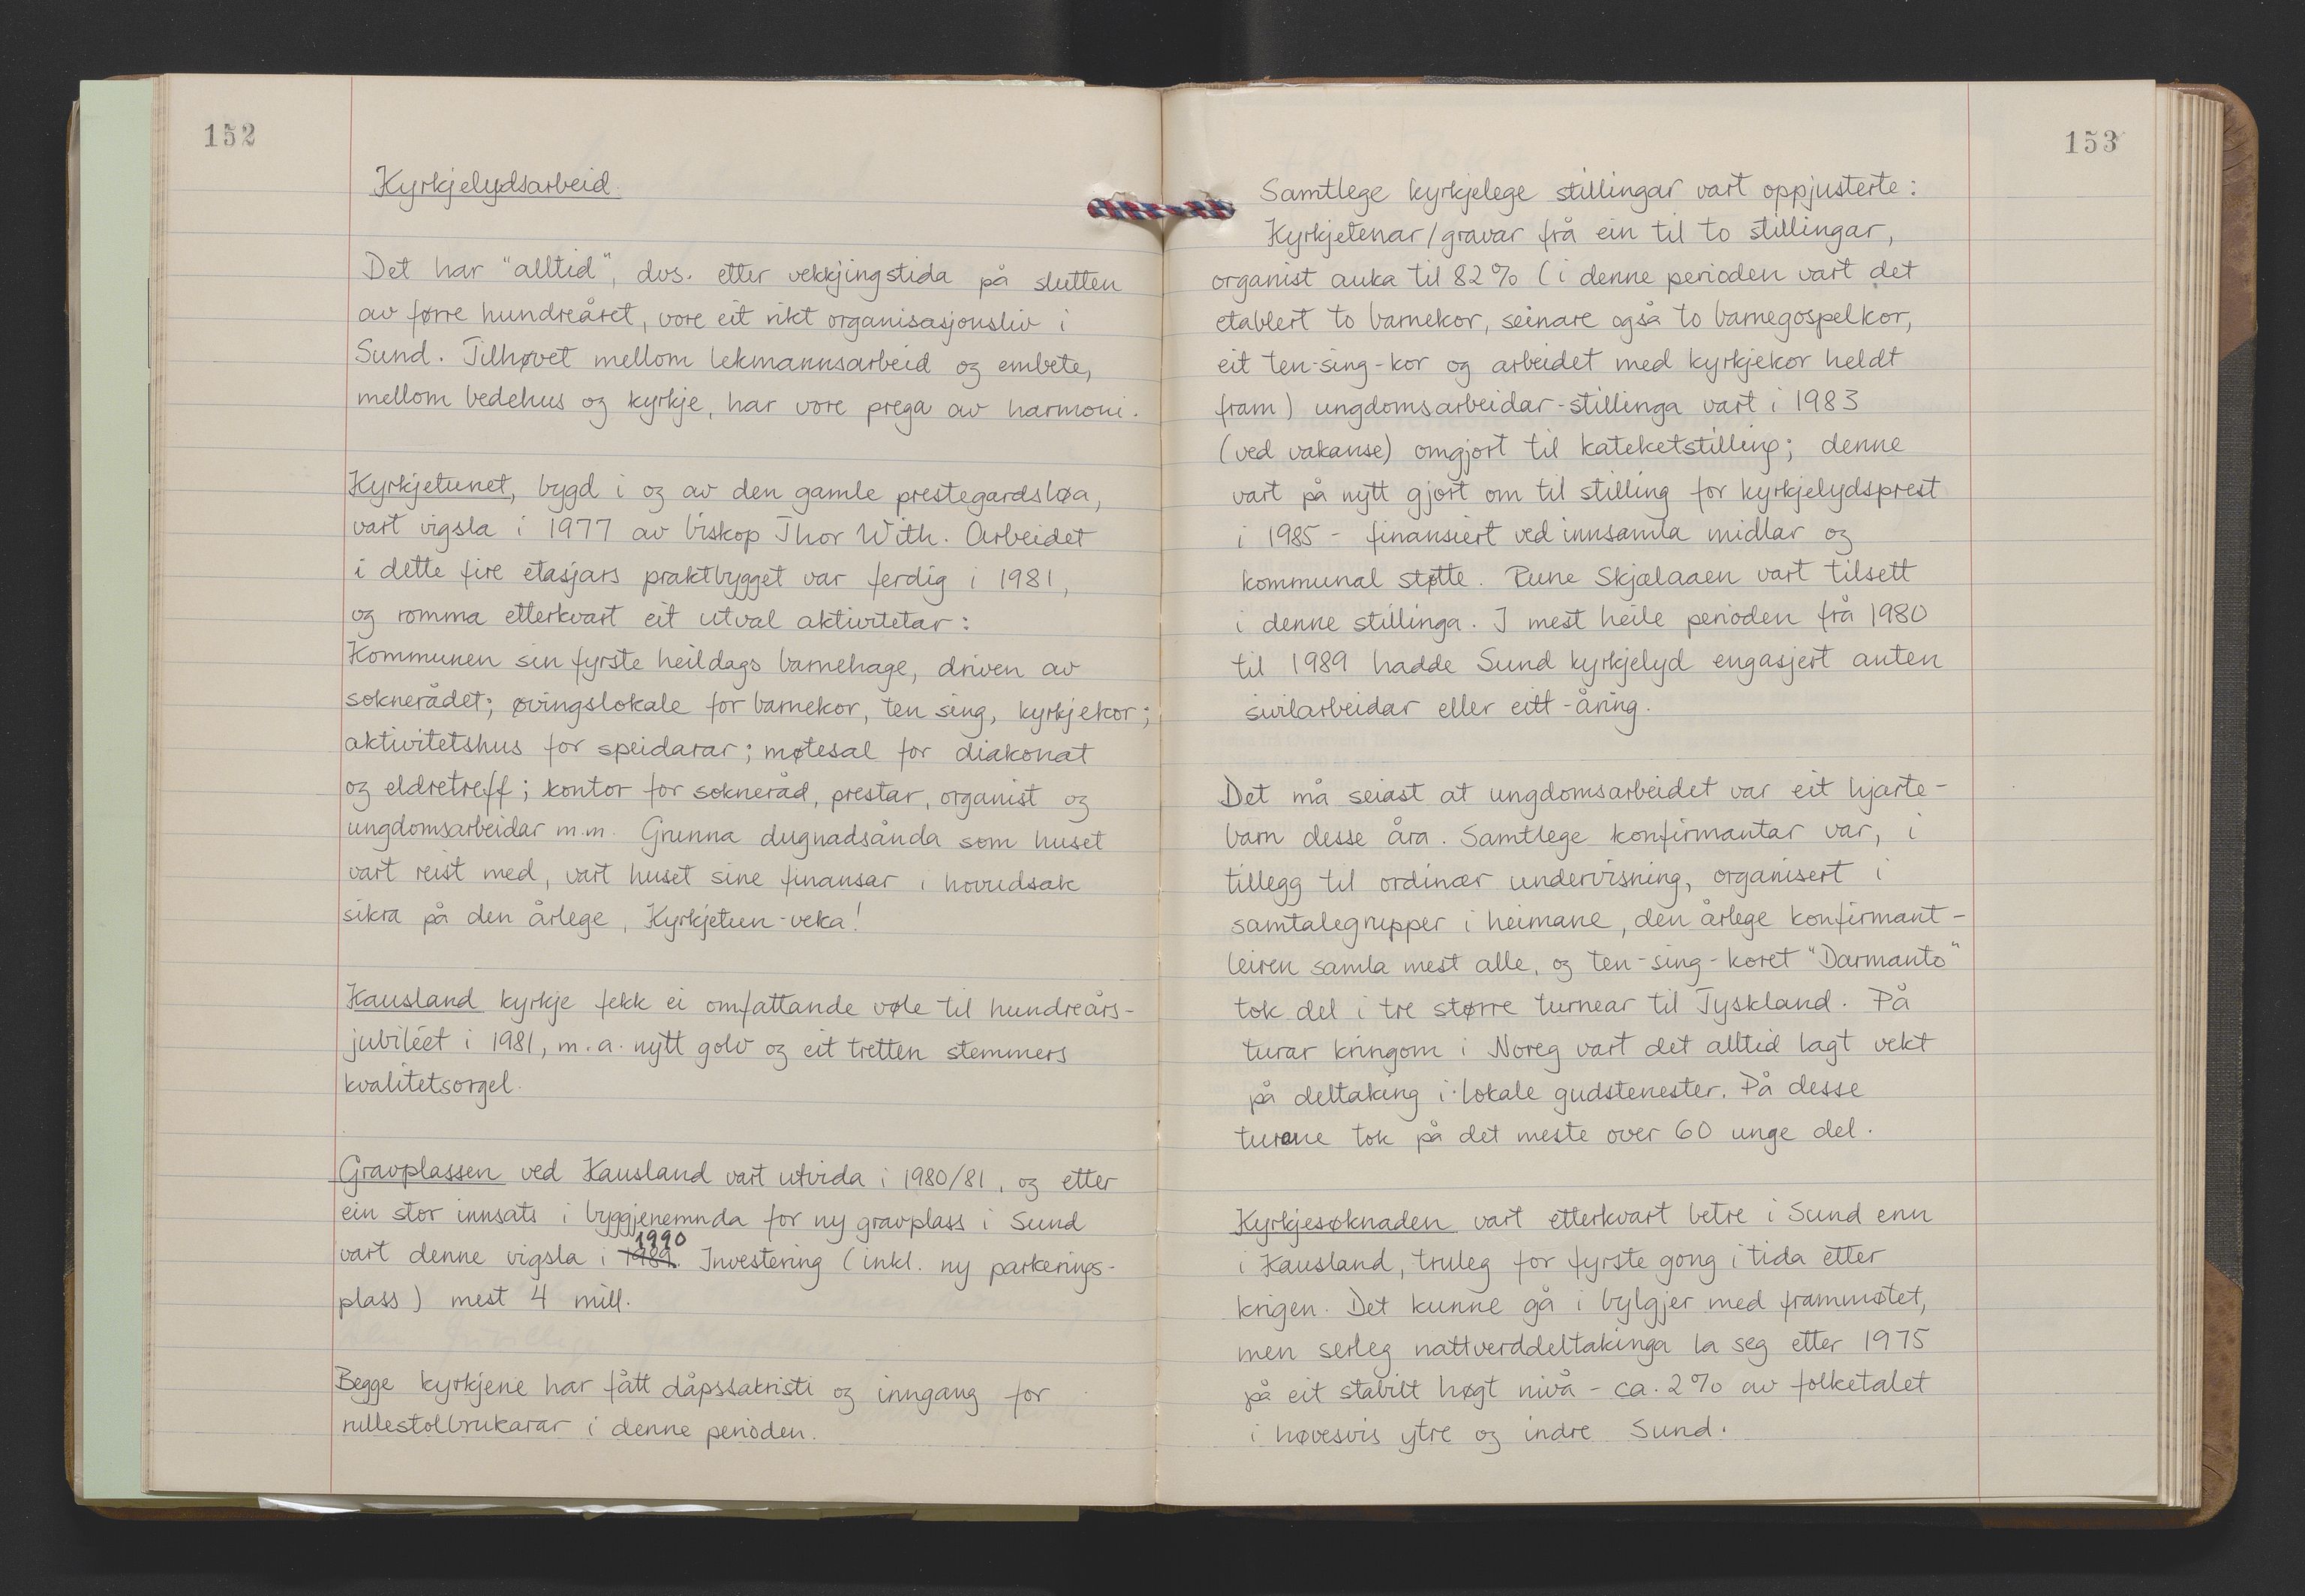 152
Kyrkjelydsarbeid.
Det har "alltid", dvs. etter vekkjingstida på slutten
av førre hundreåret, vore eit rikt organisasjonsliv i
Sund. Tilhøvet mellom lekmannsarbeid og embete,
mellom bedehus og kyrkje, har vore prega av harmoni.
Kyrkjetunet, bygd i og av den gamle prestegardsløa,
vart vigsla i 1977 av biskop Thor With. Arbeidet
i dette fire etasjars praktbygget var ferdig i 1981,
og romma etterkvart eit utval aktivitetar:
Kommunen sin fyrste heildags barnehage, driven av
soknerådet; øvingslokale for barnekor, ten sing, kyrkjekor;
aktivitetshus for speidarar; møtesal for diakonat
og eldretreff; kontor for sokneråd, prestar, organist og
ungdomsarbeidar m.m. Grunna dugnadsånda som huset
vart reist med, vart huset sine finansar i hovudsak
sikra på den årlege, Kyrkjetun-veka!
Kausland kyrkje fekk ei omfattande vøle til hundreårs-
jubiléet i 1981, m.a. nytt golv og eit tretten stemmers
kvalitetsorgel.
Gravplassen ved Kausland vart utvida i 1980/81, og etter
ein stor innsats i byggjenemnda for ny gravplass i Sund
1990
vart denne vigsla i 1989. Investering (inkl. ny parkerings-
plass) mest 4 mill.
Begge kyrkjene har fått dåpssakristi og inngang for
rullestolbrukarar i denne perioden.
153
Samtlege kyrkjelege stillingar vart oppjusterte:
Kyrkjetenar/gravar frå ein til to stillingar,
organist auka til 82% (i denne perioden vart det
etablert to barnekor, seinare også to barnegospelkor,
eit ten-sing-kor og arbeidet med kyrkjekor heldt
fram) ungdomsarbeidar-stillinga vart i 1983
(ved vakanse) omgjort til kateketstilling; denne
vart på nytt gjort om til stilling for kyrkjelydsprest
i 1985 - finansiert ved innsamla midlar og
kommunal støtte. Rune Skjælaaen vart tilsett
i denne stillinga. I mest heile perioden frå 1980
til 1989 hadde Sund kyrkjelyd engasjert anten
sivilarbeidar eller eitt-åring.
Det må seiast at ungdomsarbeidet var eit hjarte-
barn desse åra. Samtlege konfirmantar var, i
tillegg til ordinær undervisning, organisert i
samtalegrupper i heimane, den årlege konfirmant-
leiren samla mest alle, og ten-sing-koret "Darmanto"
tok del i tre større turnear til Tyskland. På
turar kringom i Noreg vart det alltid lagt vekt
på deltaking i lokale gudstenester. På desse
turane tok på det meste over 60 unge del.
Kyrkjesøknaden vart etterkvart betre i Sund enn
i Kausland, truleg for fyrste gong i tida etter
krigen. Det kunne gå i bylgjer med frammøtet,
men serleg nattverddeltakinga la seg etter 1975
på eit stabilt høgt nivå - ca. 2% av folketalet
i høvesvis ytre og indre Sund.